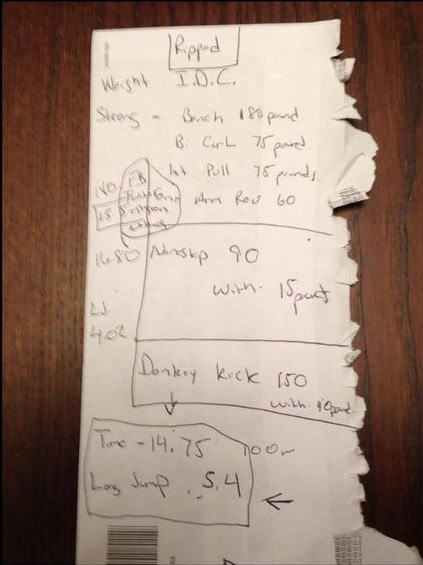 Ripped
Weight I.D.C.
Strong - Bench 180 pound
B. Curl 75 pound
lat Pull 75 pounds
Arm Row 60
NO
FB
15
90
With 15
L.J.
4.02
Donkey kick 150
With 10 pound
Time - 14.75 100m
Long Jump . 5.4